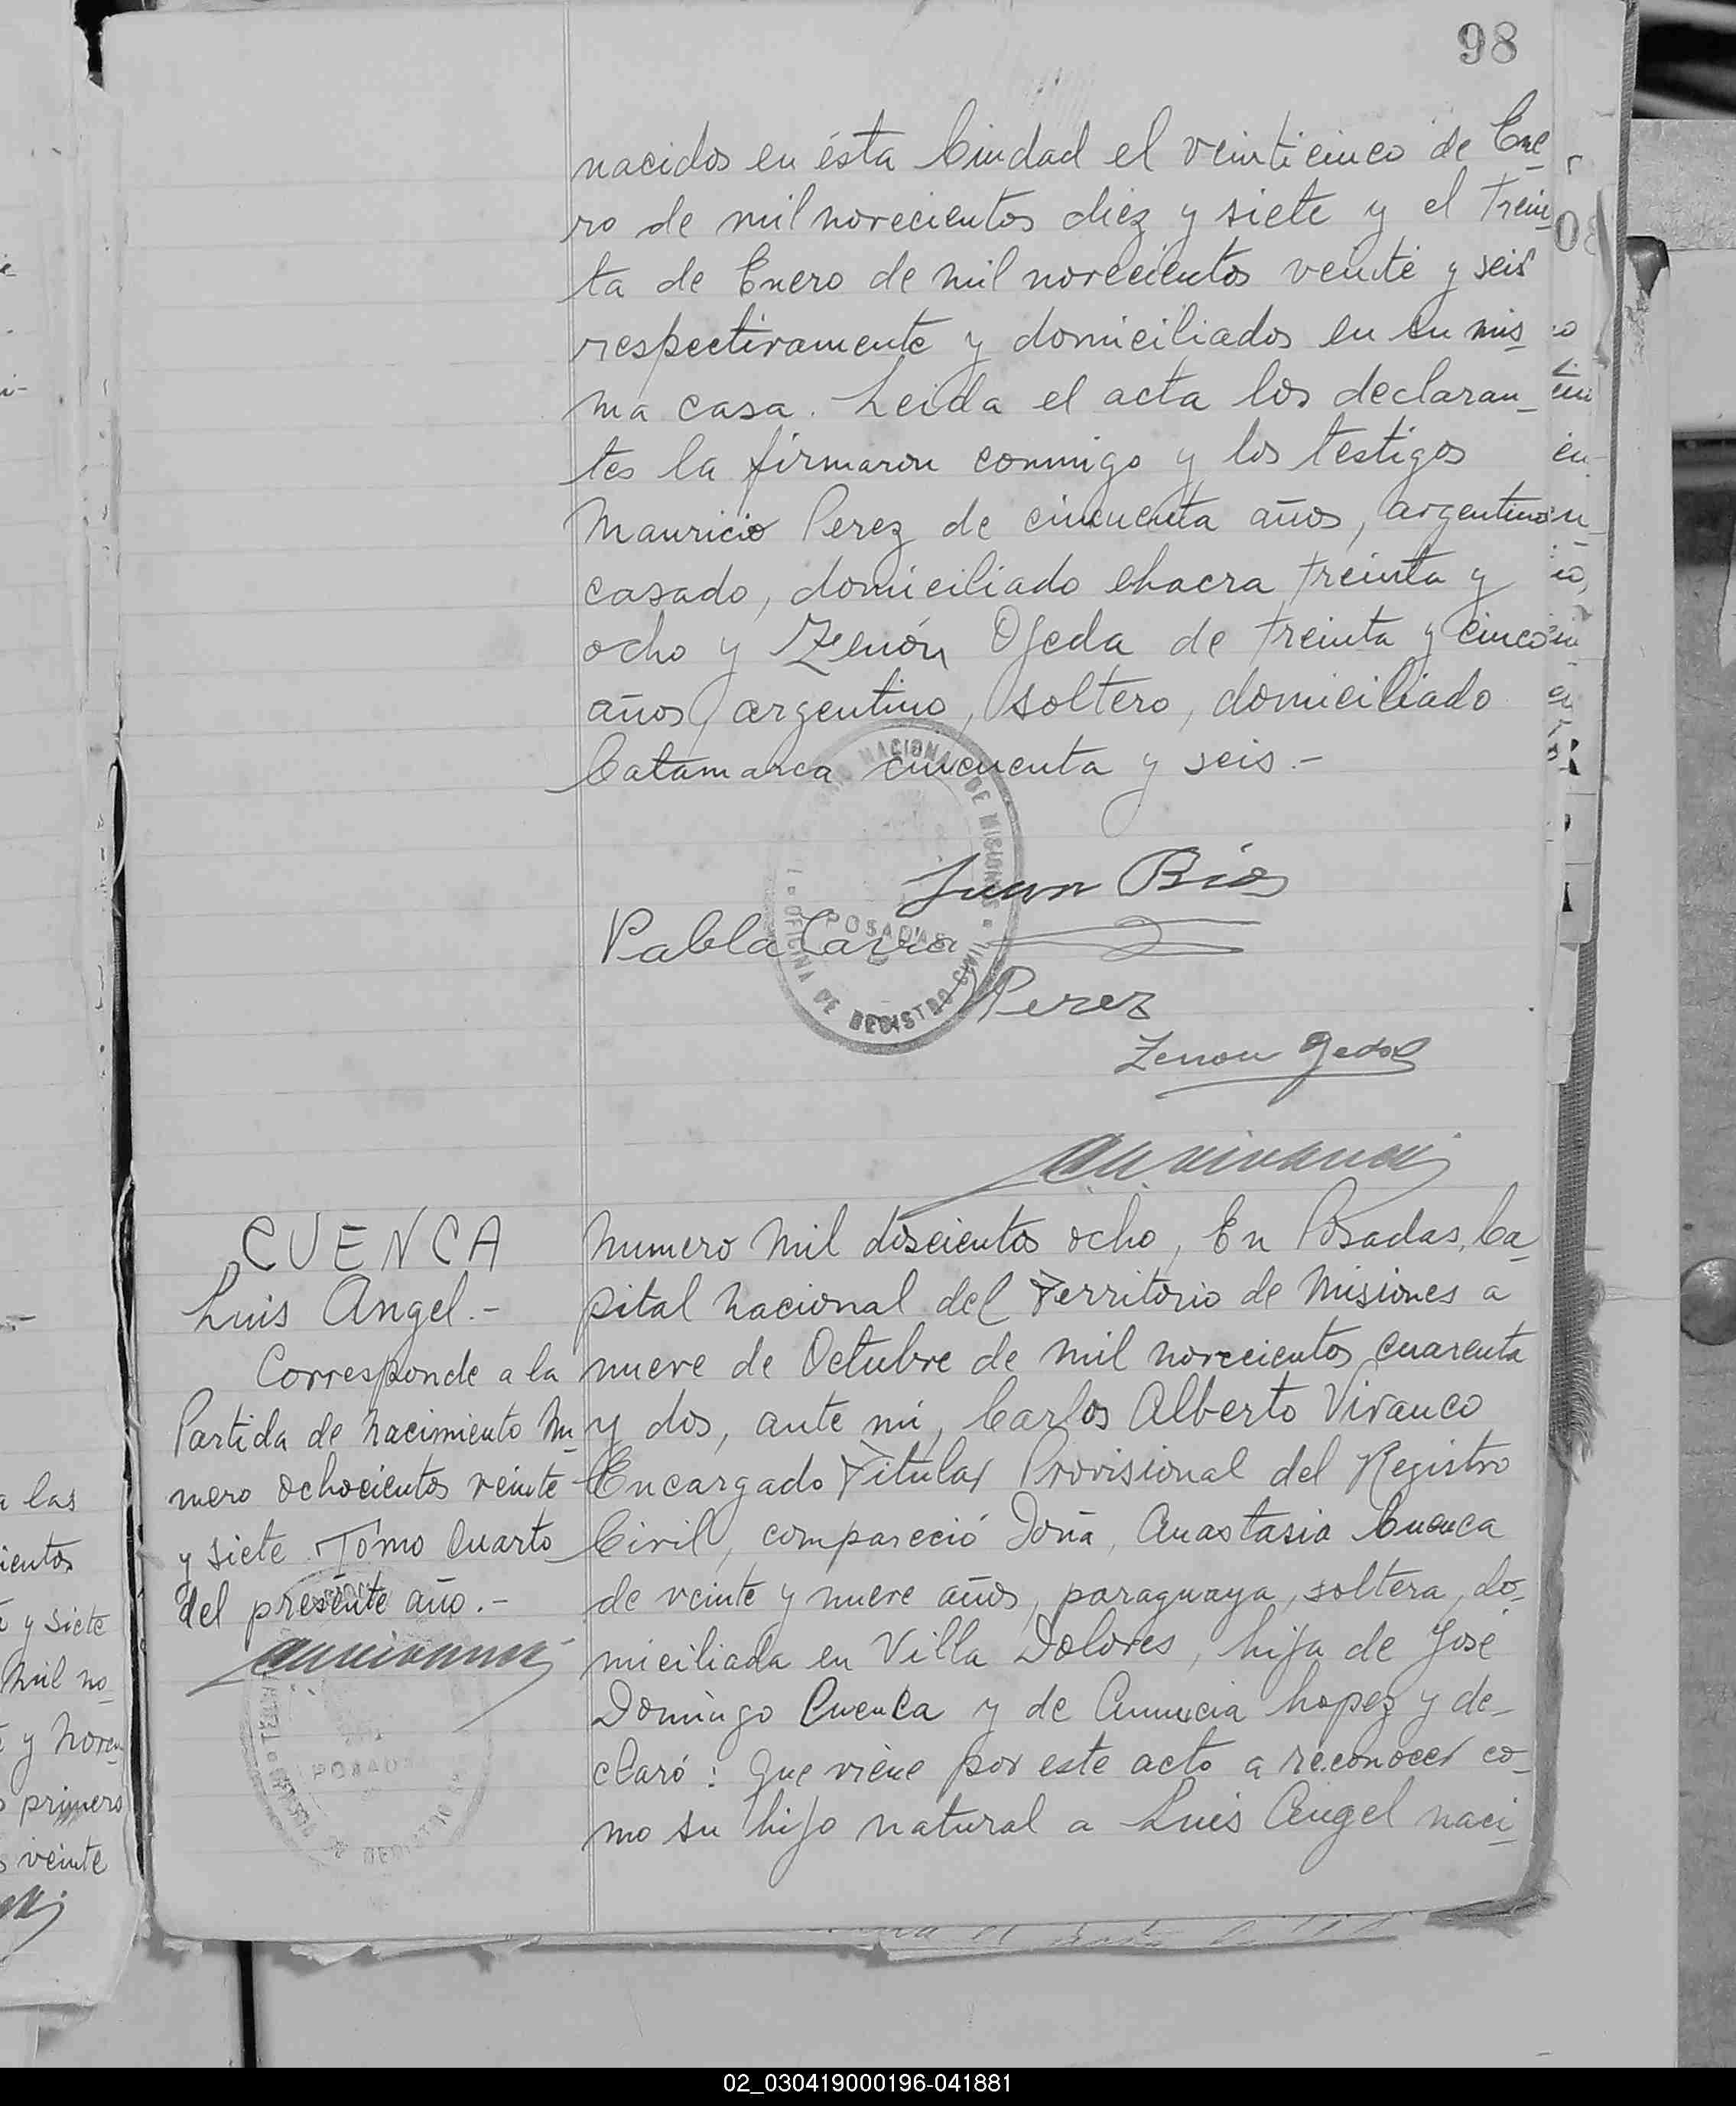 98
nacidos en ésta Ciudad el veinticinco de Ene_
ro de mil novecientos diez y siete y el trein_
ta de Enero de mil novecientos veinte y seis
respectivamente y domiciliados en su mis_
ma casa. Leida el acta los declaran_
tes la firmaron conmigo y los testigos
Mauricio Perez de cincuenta años, argentino
casado, domiciliado chacra treinta y
ocho y Zenón Ojeda de treinta y cinco
años, argentino, soltero, domiciliado
Catamarca cincuenta y seis.-
NACIONAL DE MISIONES
POSADAS
OFICINA DE REGISTRO CIVIL
Juan
Pabla
Perez
Zenon
CUENCA
Luis Angel.-
Corresponde a la
Partida de nacimiento Nu_
mero ochocientos veinte
y siete. Tomo Cuarto
del presente año.-
POSADAS
Numero Mil doscientos ocho, En Posadas, Ca_
pital nacional del Territorio de Misiones a
nueve de Octubre de mil novecientos cuarenta
y dos, ante mi, Carlos Alberto Vivanco
Encargado Titular Provisional del Registro
Civil, compareció Doña, Anastasia Cuenca
de veinte y nueve años, paraguaya, soltera, do_
miciliada en Villa Dolores, hija de José
Domingo Cuenca y de Anuncia Lopez y de_
claró: Que viene por este acto a reconocer co_
mo su hijo natural a Luis Angel naci_
a las
y siete
mil no_
primero
veinte
02_030419000196-041881